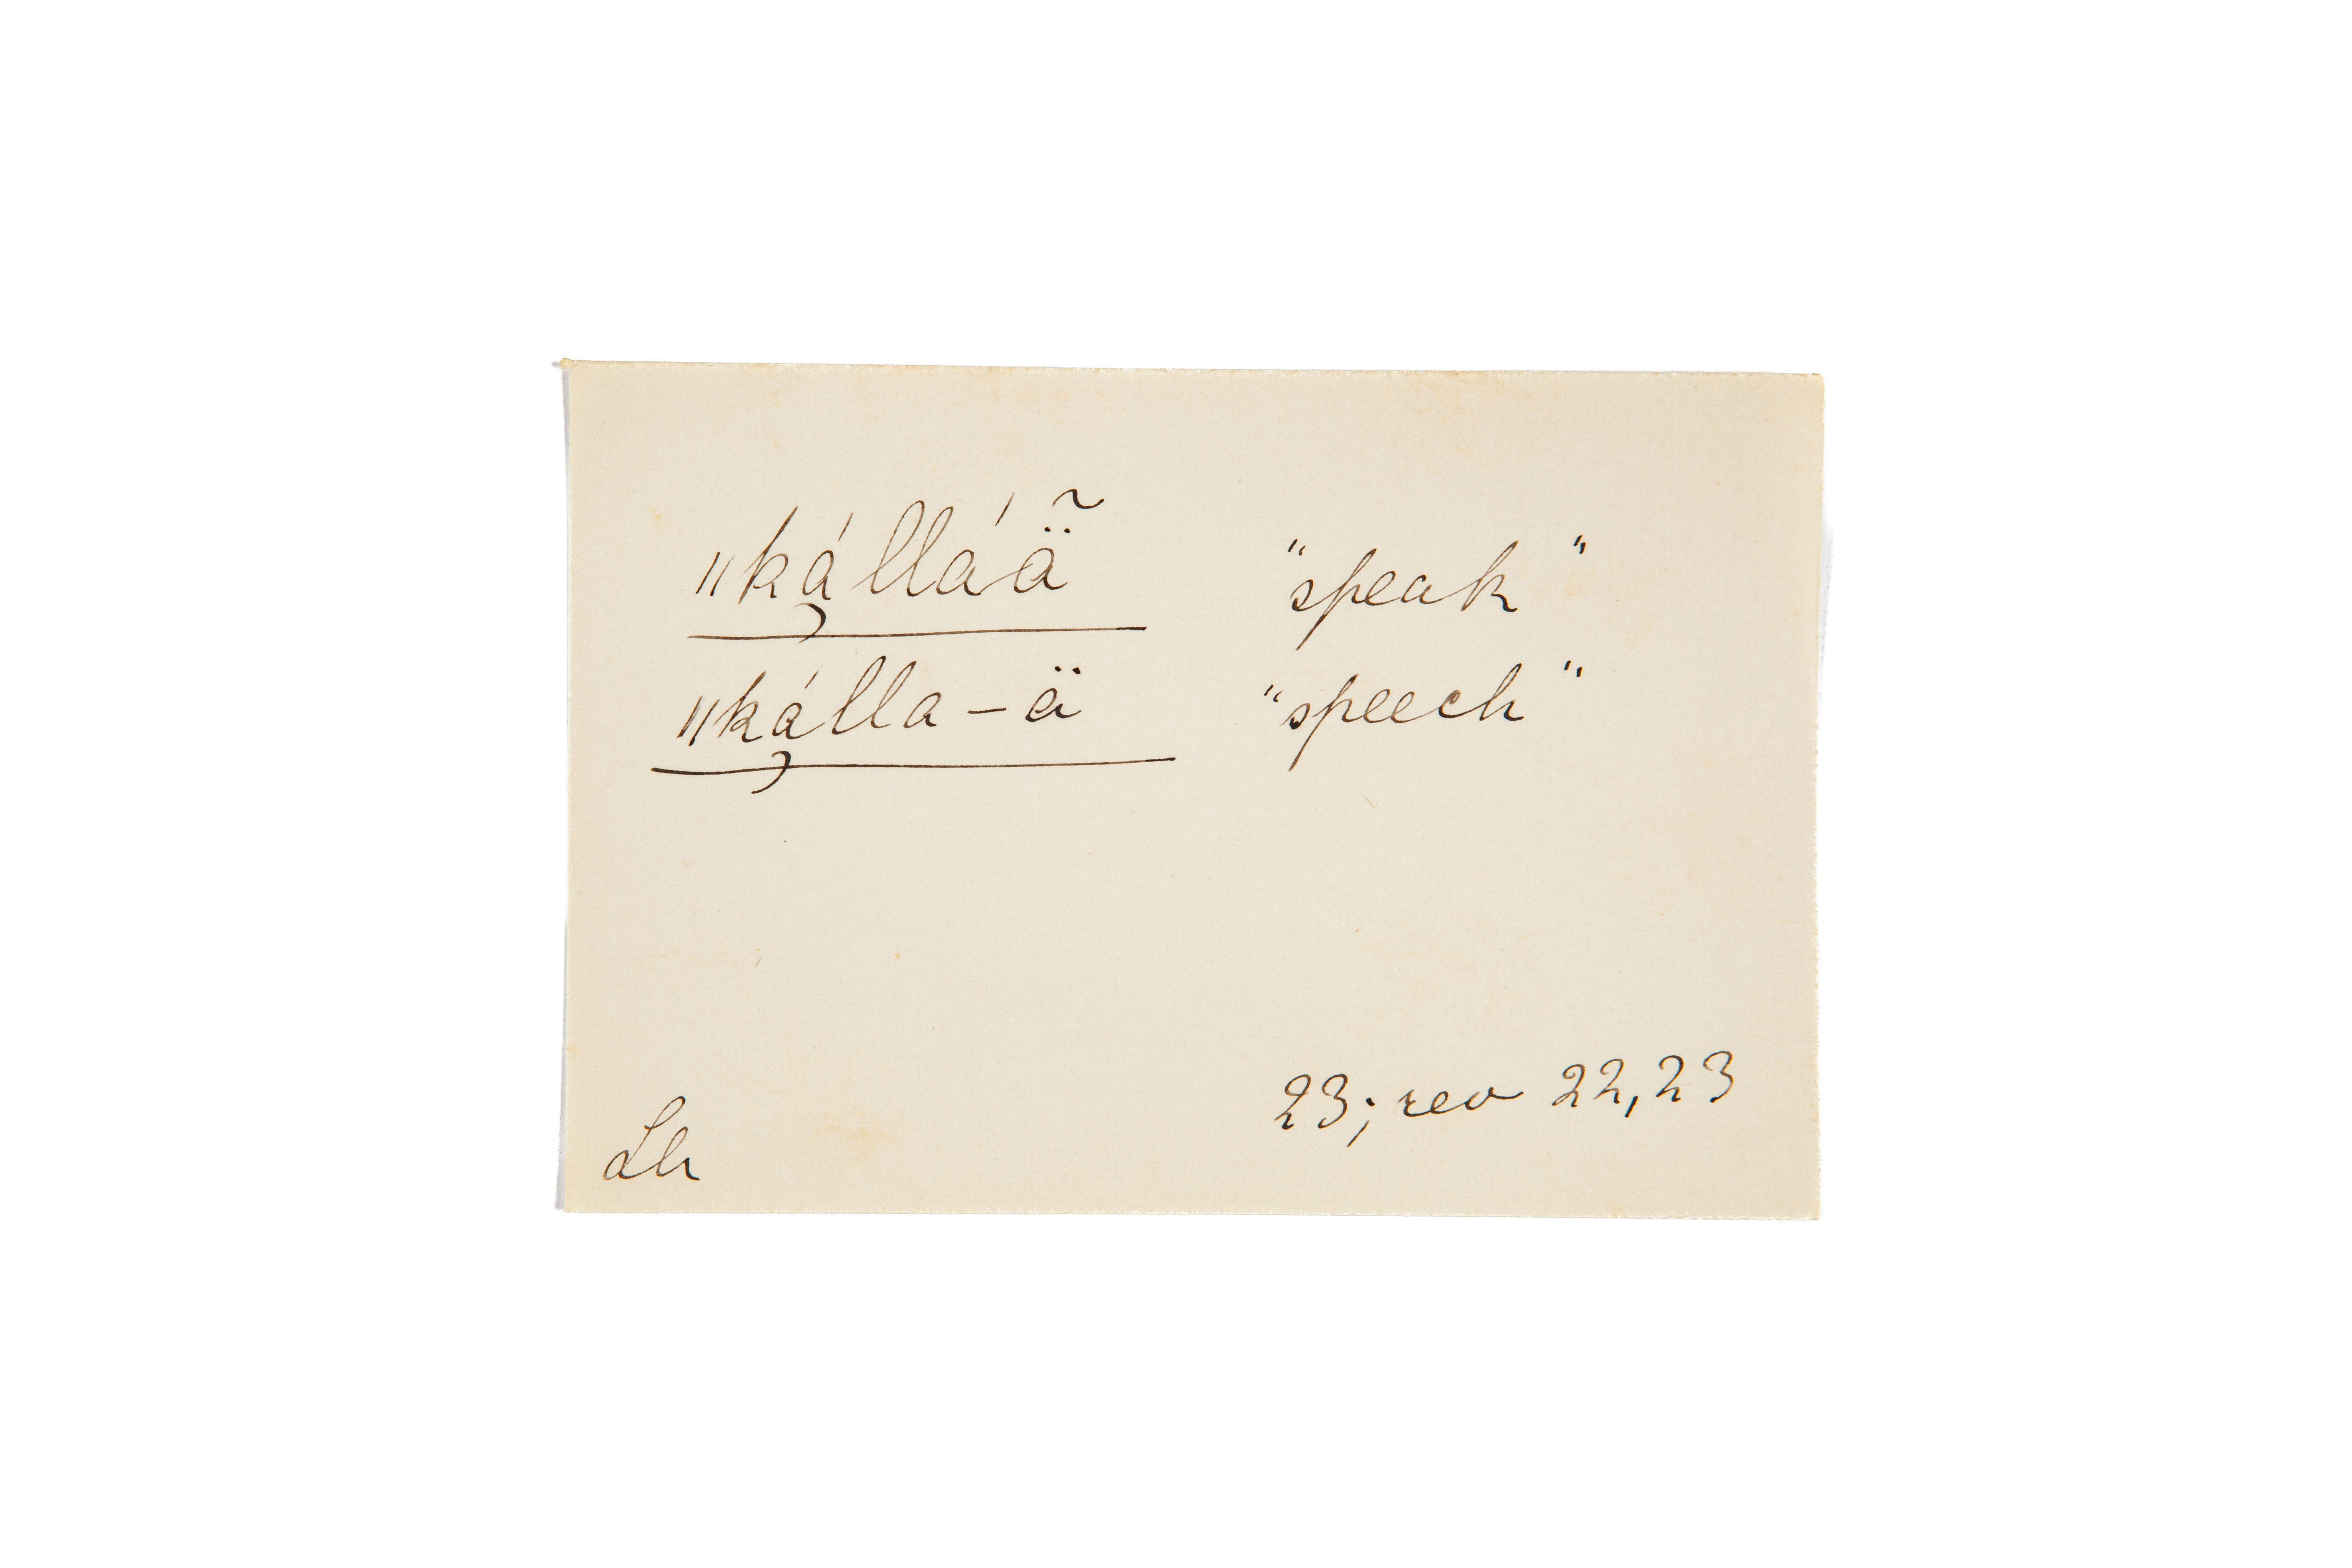 ǁká̦lláä̃ "speak"
ǁká̦lla-ä "speech"
23; rev 22,23
Lh